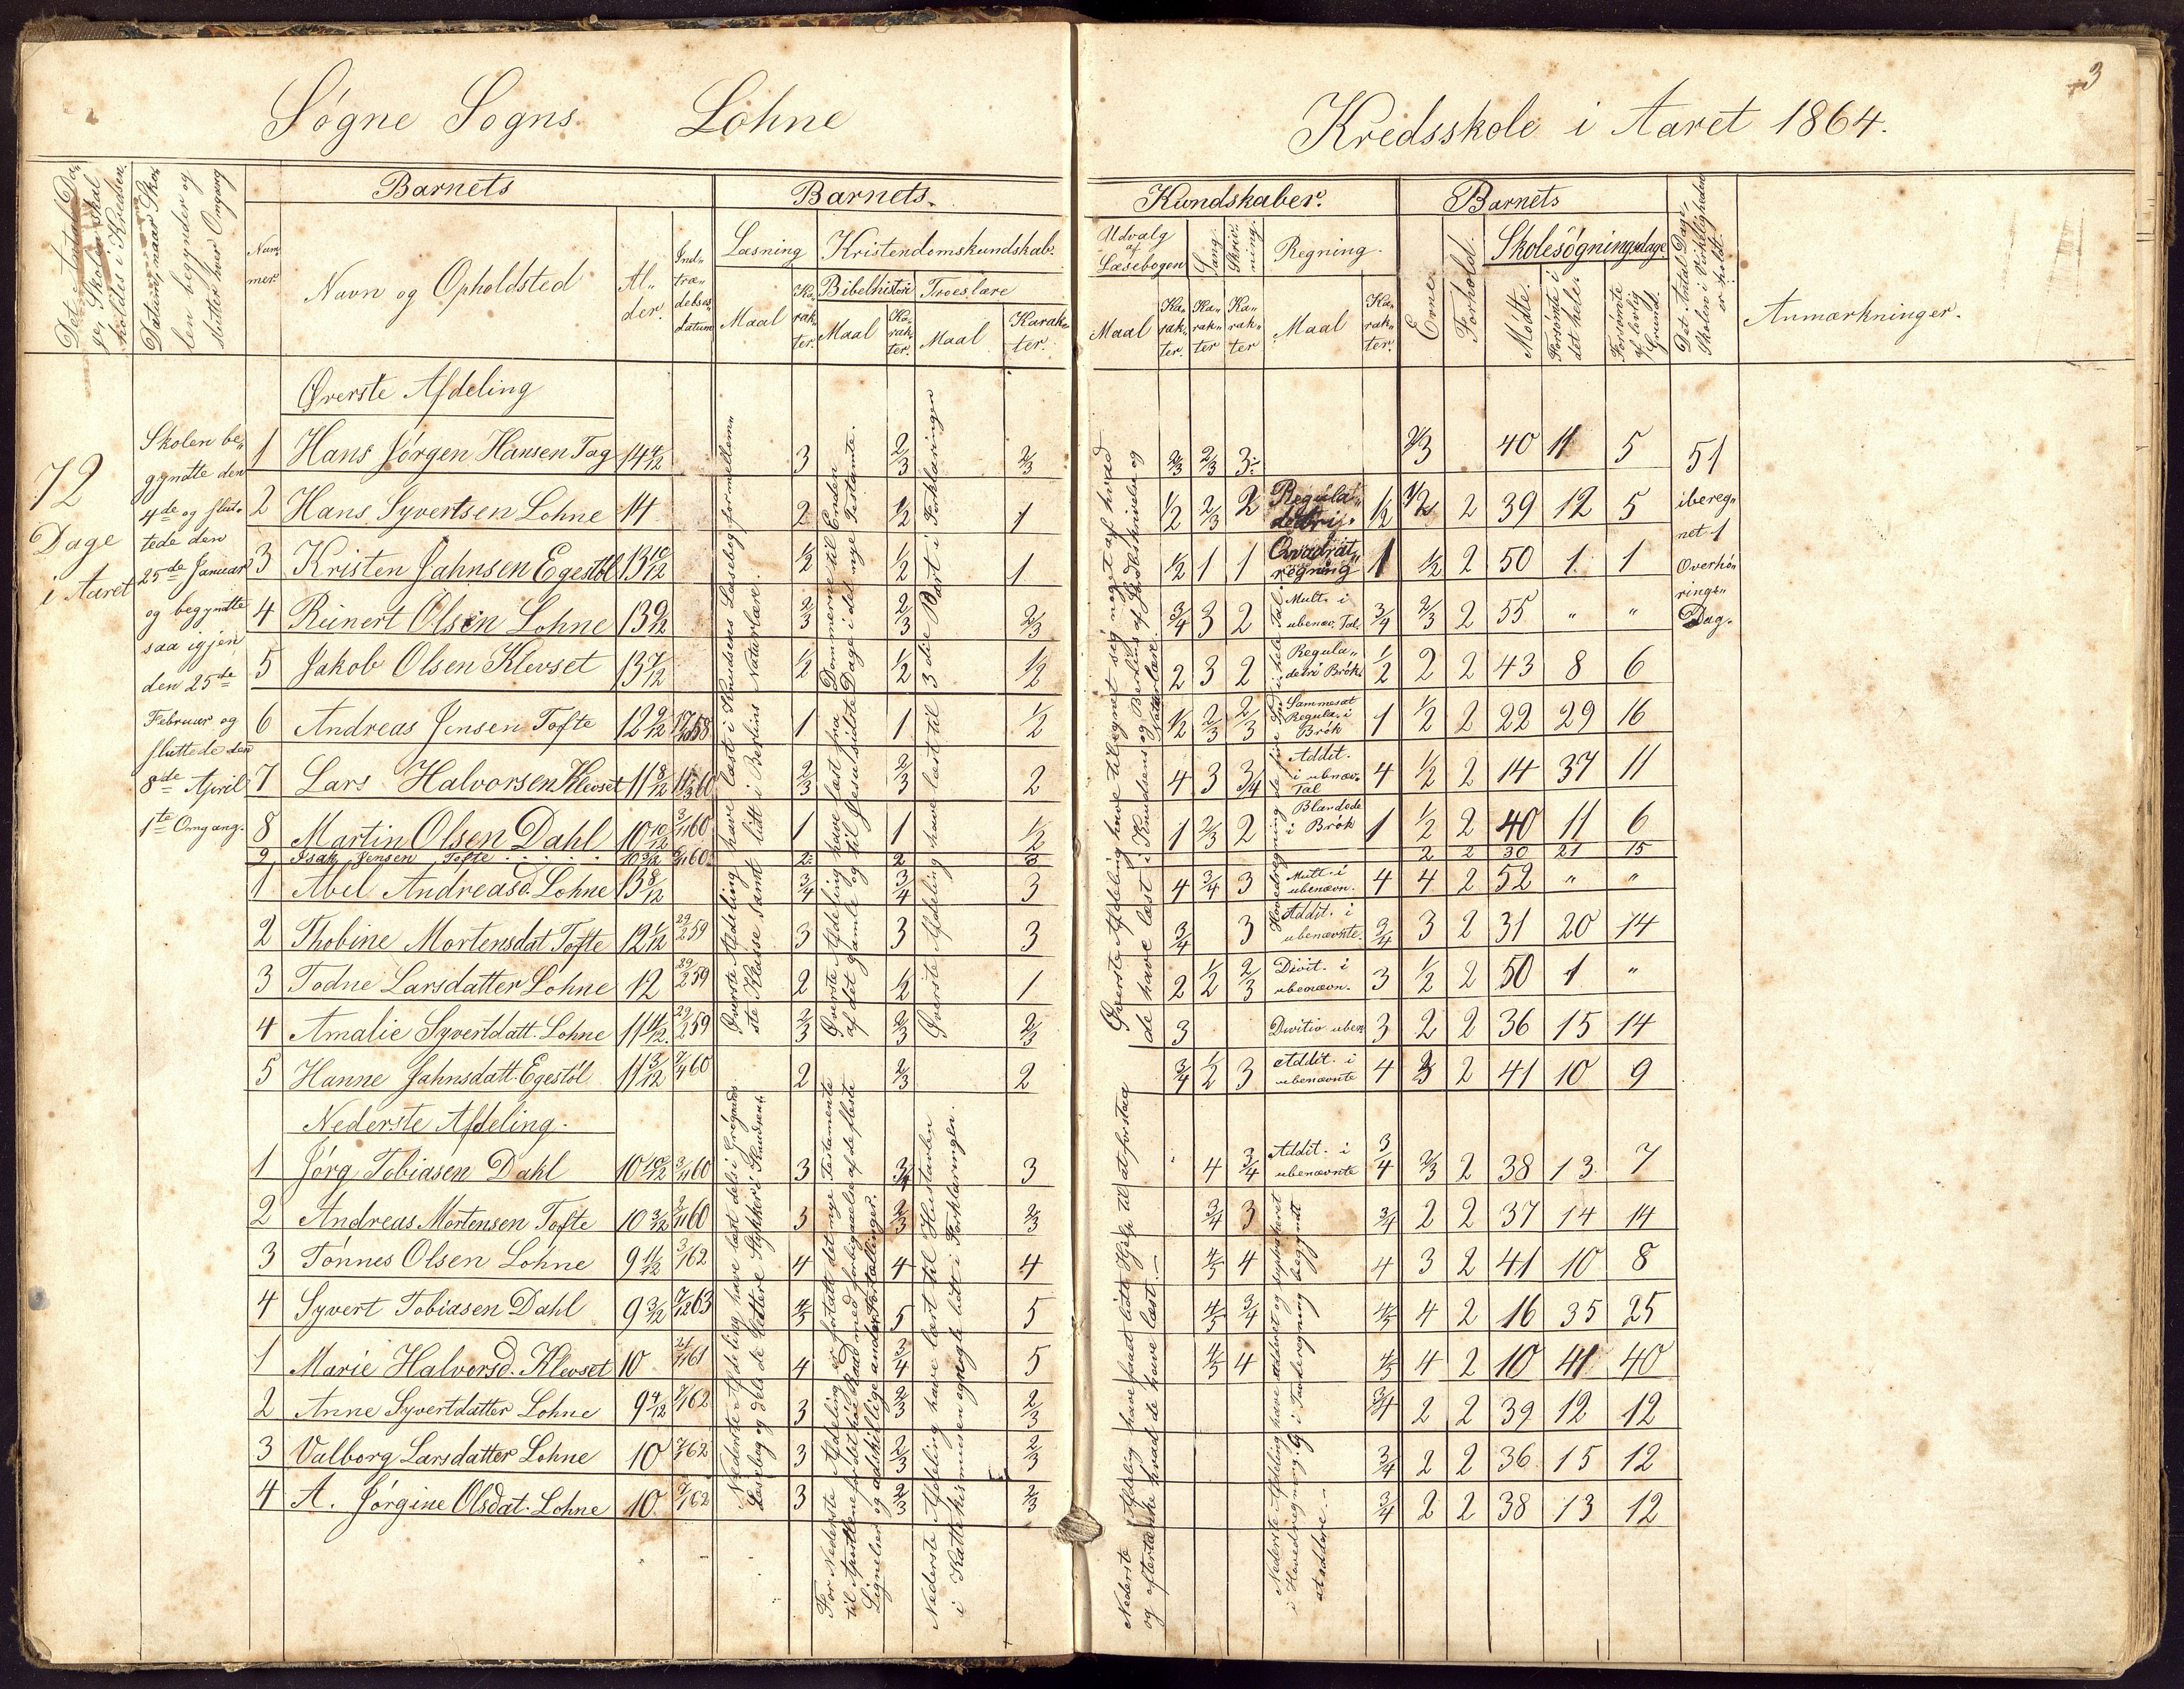 3
Søgne Sogns Lohne
Kredsskole i Aaret 1864.
Det Antal Da-
ge, Skolen skal
holdes i Kredsen.
Datum, naar Sko-
len begynder og
slutter hver Omgang
Barnets
Num-
mer.
Navn og Opholdsted
Al-
der.
Ind-
træ-
delses-
datum
Barnets
Kundskaber.
Læsning
Maal
Ka-
rak-
ter.
Kristendomskundskab.
Bibelhistorie
Maal
Ka-
rak-
ter.
Troeslære
Maal
Karak-
ter.
Udvalg
af
Læsebogen
Maal
Ka-
rak-
ter.
Sang.
Ka-
rak-
ter
Skriv-
ning.
Ka-
rak-
ter
Regning.
Maal
Ka-
rak-
ter.
Barnets
Evner.
Forhold.
Skolesøgningsdage.
Mødte.
Forsømte i
det hele.
Forsømte
af lovlig
Grund.
Det Antal Dage,
Skolen i Virkeligheden
er holdt.
Anmærkninger.
72
Dage
i Aaret
Skolen be-
gyndte den
4de og slut-
tede den
25de Januar
og begyndte
saa igjen
den 25de
Februar og
sluttede den
8de April
1te Omgang.
Øverste Afdeling
1 Hans Jørgen Hansen Tag 14 4/12 3 2/3 2/3 2/3 2/3 3- 2/3 40 11 5
2 Hans Syvertsen Lohne 14 2 1/2 1 1/2 2/3 2 Regula detri. 1/2 1/2 2 39 12 5
3 Kristen Jahnsen Egestøl 13 10/12 1/2 1/2 1 1/2 1 1 Qvadrat- regning 1 1/2 2 50 1 1
4 Reinert Olsen Lohne 13 9/12 2/3 2/3 2/3 3/4 3 2 Mult. i ubenæv. Tal. 3/4 2/3 2 55 " "
5 Jakob Olsen Klevset 13 7/12 1/2 1/2 1/2 2 3 2 Regula- detri Brøk. 1/2 2 2 43 8 6
6 Andreas Jensen Tofte 12 9/12 1 1 1/2 1/2 2/3 2/3 Sammesat Regula. i Brøk 1 1/2 2 22 29 16
7 Lars Halvorsen Klevset 11 8/12 2/3 2/3 2 4 3 3/4 Addit. i ubnæv. Tal 4 1/2 2 14 37 11
8 Martin Olsen Dahl 10 10/12 3/11 60 1 1 1/2 1 2/3 2 Blandede i Brøk 1 1/2 2 40 11 6
9 Isak Jensen Tofte 10 3/12 2- 2 3 2 2 30 21 15
1 Abel Andreasd. Lohne 13 8/12 3/4 3/4 3 4 3/4 3 Mult. i ubenævn. 4 4 2 52 " "
2 Thobine Mortensdat Tofte 12 1/12 29/2 59 3 3 3 3/4 3 Addit. i ubenævnte. 3/4 3 2 31 20 14
3 Todne Larsdatter Lohne 12 29/2 59 2 1/2 1 2 1/2 2/3 Divit. i ubenævn. 3 1/2 2 50 1 "
4 Amalie Syvertdatt. Lohne 11 4/12 29/2 59 2/3 2/3 2/3 3 Divitio uben 3 2 2 36 15 14
5 Hanne Jahnsdatt. Egestøl 11 3/12 7/4 60 2 2/3 2 3/4 1/2 3 Addit. i ubenævnte 4 2/3 2 41 10 9
Nederste Afdeling.
1 Jørg Tobiasen Dahl 10 10/12 3/11 60 3 3/4 3 " 4 3/4 Addit. i ubenævnte 3/4 2/3 2 38 13 7
2 Andreas Mortensen Tofte 10 3/12 3/11 60 3 2/3 2/3 3/4 3 3/4 2 2 37 14 14
3 Tønnes Olsen Lohne 9 11/12 3/1 62 4 4 4 4/5 4 4 3 2 41 10 8
4 Syvert Tobiasen Dahl 9 3/12 17/12 63 4/5 5 5 4/5 3/4 4/5 4 2 16 35 25
1 Marie Halvorsd. Klevset 10 4 3/4 5 4/5 4 4/5 4 2 10 41 40
2 Anne Syvertdatter Lohne 9 4/12 7/1 62 3 2/3 2/3 3/4 2 2 39 12 12
3 Valborg Larsdatter Lohne 10 7/1 62 3 2/3 2/3 3/4 2 2 36 15 12
4 A. Jørgine Olsdat. Lohne 10 7/1 62 3 2/3 2/3 3/4 2 2 38 13 12
51
ibereg-
net 1
Overhø-
rings-
Dag.
Øverste Afdeling have læst i Knudsens Læsebog for mellem-
ste Klasse samt lidt i Berlins Naturlære.
Øverste Afdeling have læst fra Dommerne til Enden
af det gamle og til Jesu sidste Dage i det nye Testamente.
Øverste Afdeling have læst til 3die Part i Forklaringen
Øverste Afdeling have tilegnet sig noget af hvad
de have læst i Knudsens og Berlins af Jordbeskrivelse og
Naturlære.
Hovedregning de fire Sp. i hele Tal.
Nederste Afdeling have læst dels i Grøgaards
Læsebog og dels de lettere Stykker i Knudsens.
For Nederste Afdeling er fortalt det nye Testamente
til Apostlene for det høie Raad med forbigaaelse af de fleste
Lignelser og adskillige andre Fortællinger.
Nederste Afdeling have læst til Hustavlen
i Kattekismusen og nogle lidt i Forklaringen.
Nederste Afdelig have faaet lidt Hjelp til at forstaa
og eftertænke hvad de have læst.-
Nederste Afdeling have adderet og supstraheret
i Hovedregning. Og i Tavleregning begyndt
at addere.-